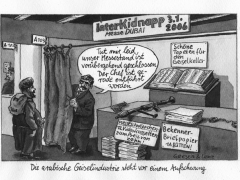 InterKidnapp 3.1.2006
Messe DUBAI
Tut mir leid,
unser Messestand ist
vorübergehend geschlossen.
Der Chef ist ge-
rade entführt
worden
Schöne
Tapeten für
den
Geiselkeller
Bekenner-
Briefpapier
Die arabische Geiselindustrie steht vor einem Aufschwung